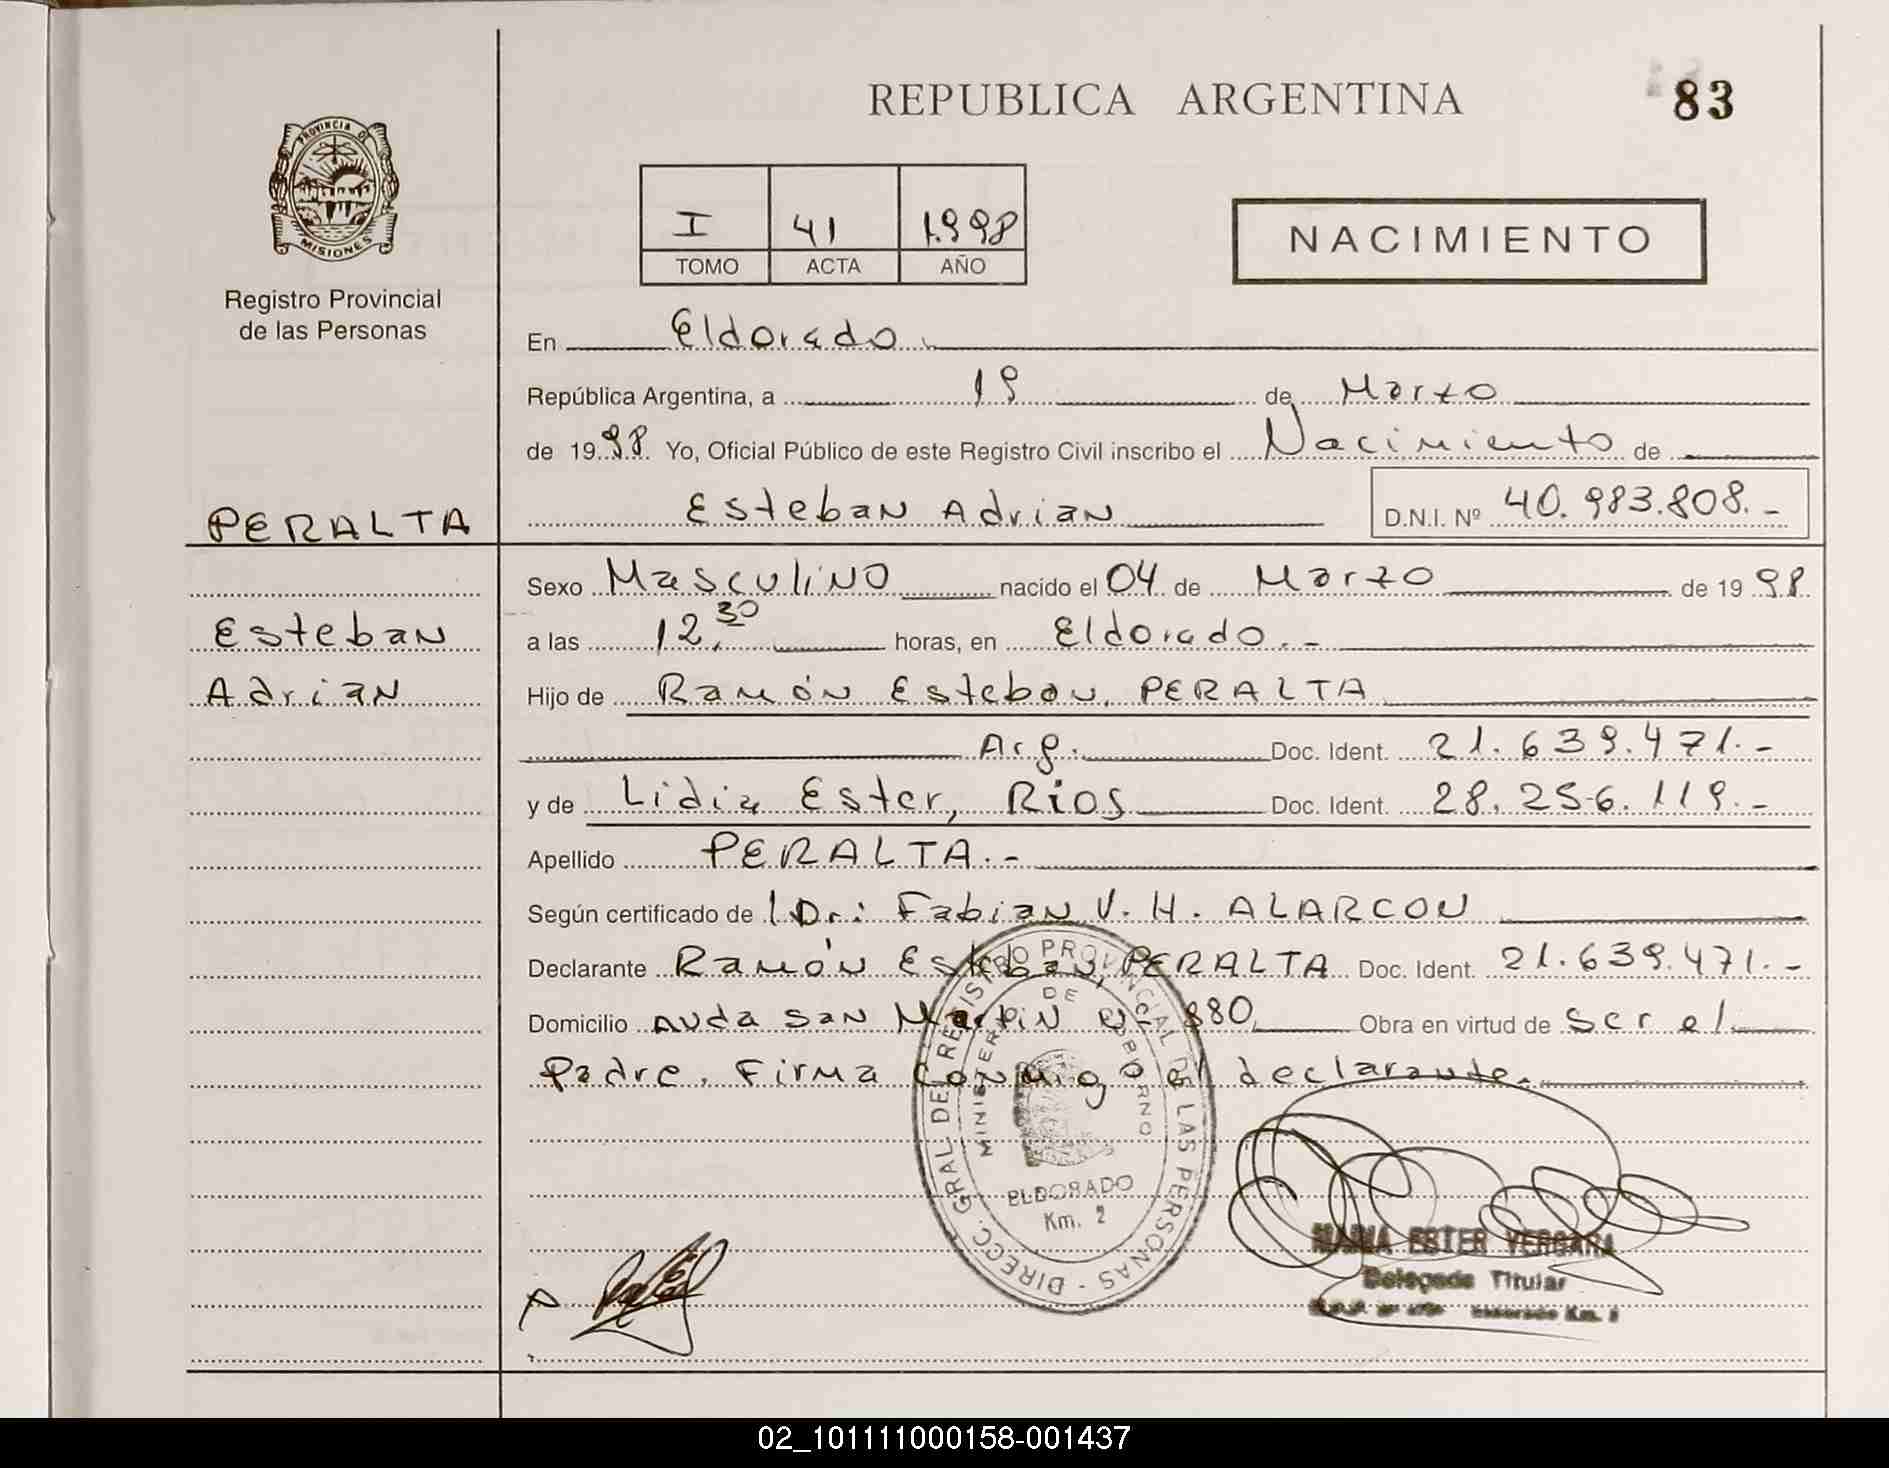 REPUBLICA ARGENTINA
83
PROVINCIA DE
MISIONES
Registro Provincial
de las Personas
I 41 1.998
TOMO ACTA AÑO
NACIMIENTO
En Eldorado.
República Argentina, a 19 de Marzo
de 1998. Yo, Oficial Público de este Registro Civil inscribo el Nacimiento de
PERALTA
Esteban Adrian D.N.I. Nº 40.983.808.-
Sexo Masculino nacido el 04 de Marzo de 1998.
Esteban
a las 12,30 horas, en Eldorado.-
Adrian
Hijo de Ramón Esteban, PERALTA
Arg. Doc. Ident. 21.639.471.-
y de Lidia Ester, Rios Doc. Ident. 28.256.119.-
Apellido PERALTA.-
Según certificado de Dr. Fabian V. H. ALARCON
Declarante Ramón Esteban, PERALTA Doc. Ident. 21.639.471.-
Domicilio Avda San Martin Nº 880, Obra en virtud de ser el
Padre. Firma conmigo el declarante.
DIRECC. GRAL DE REGISTRO PROVINCIAL DE LAS PERSONAS -
MINISTERIO DE GOBIERNO
ELDORADO
Km. 2
MARIA ESTER VERGARA
Delegada Titular
Eldorado Km. 2
02_101111000158-001437